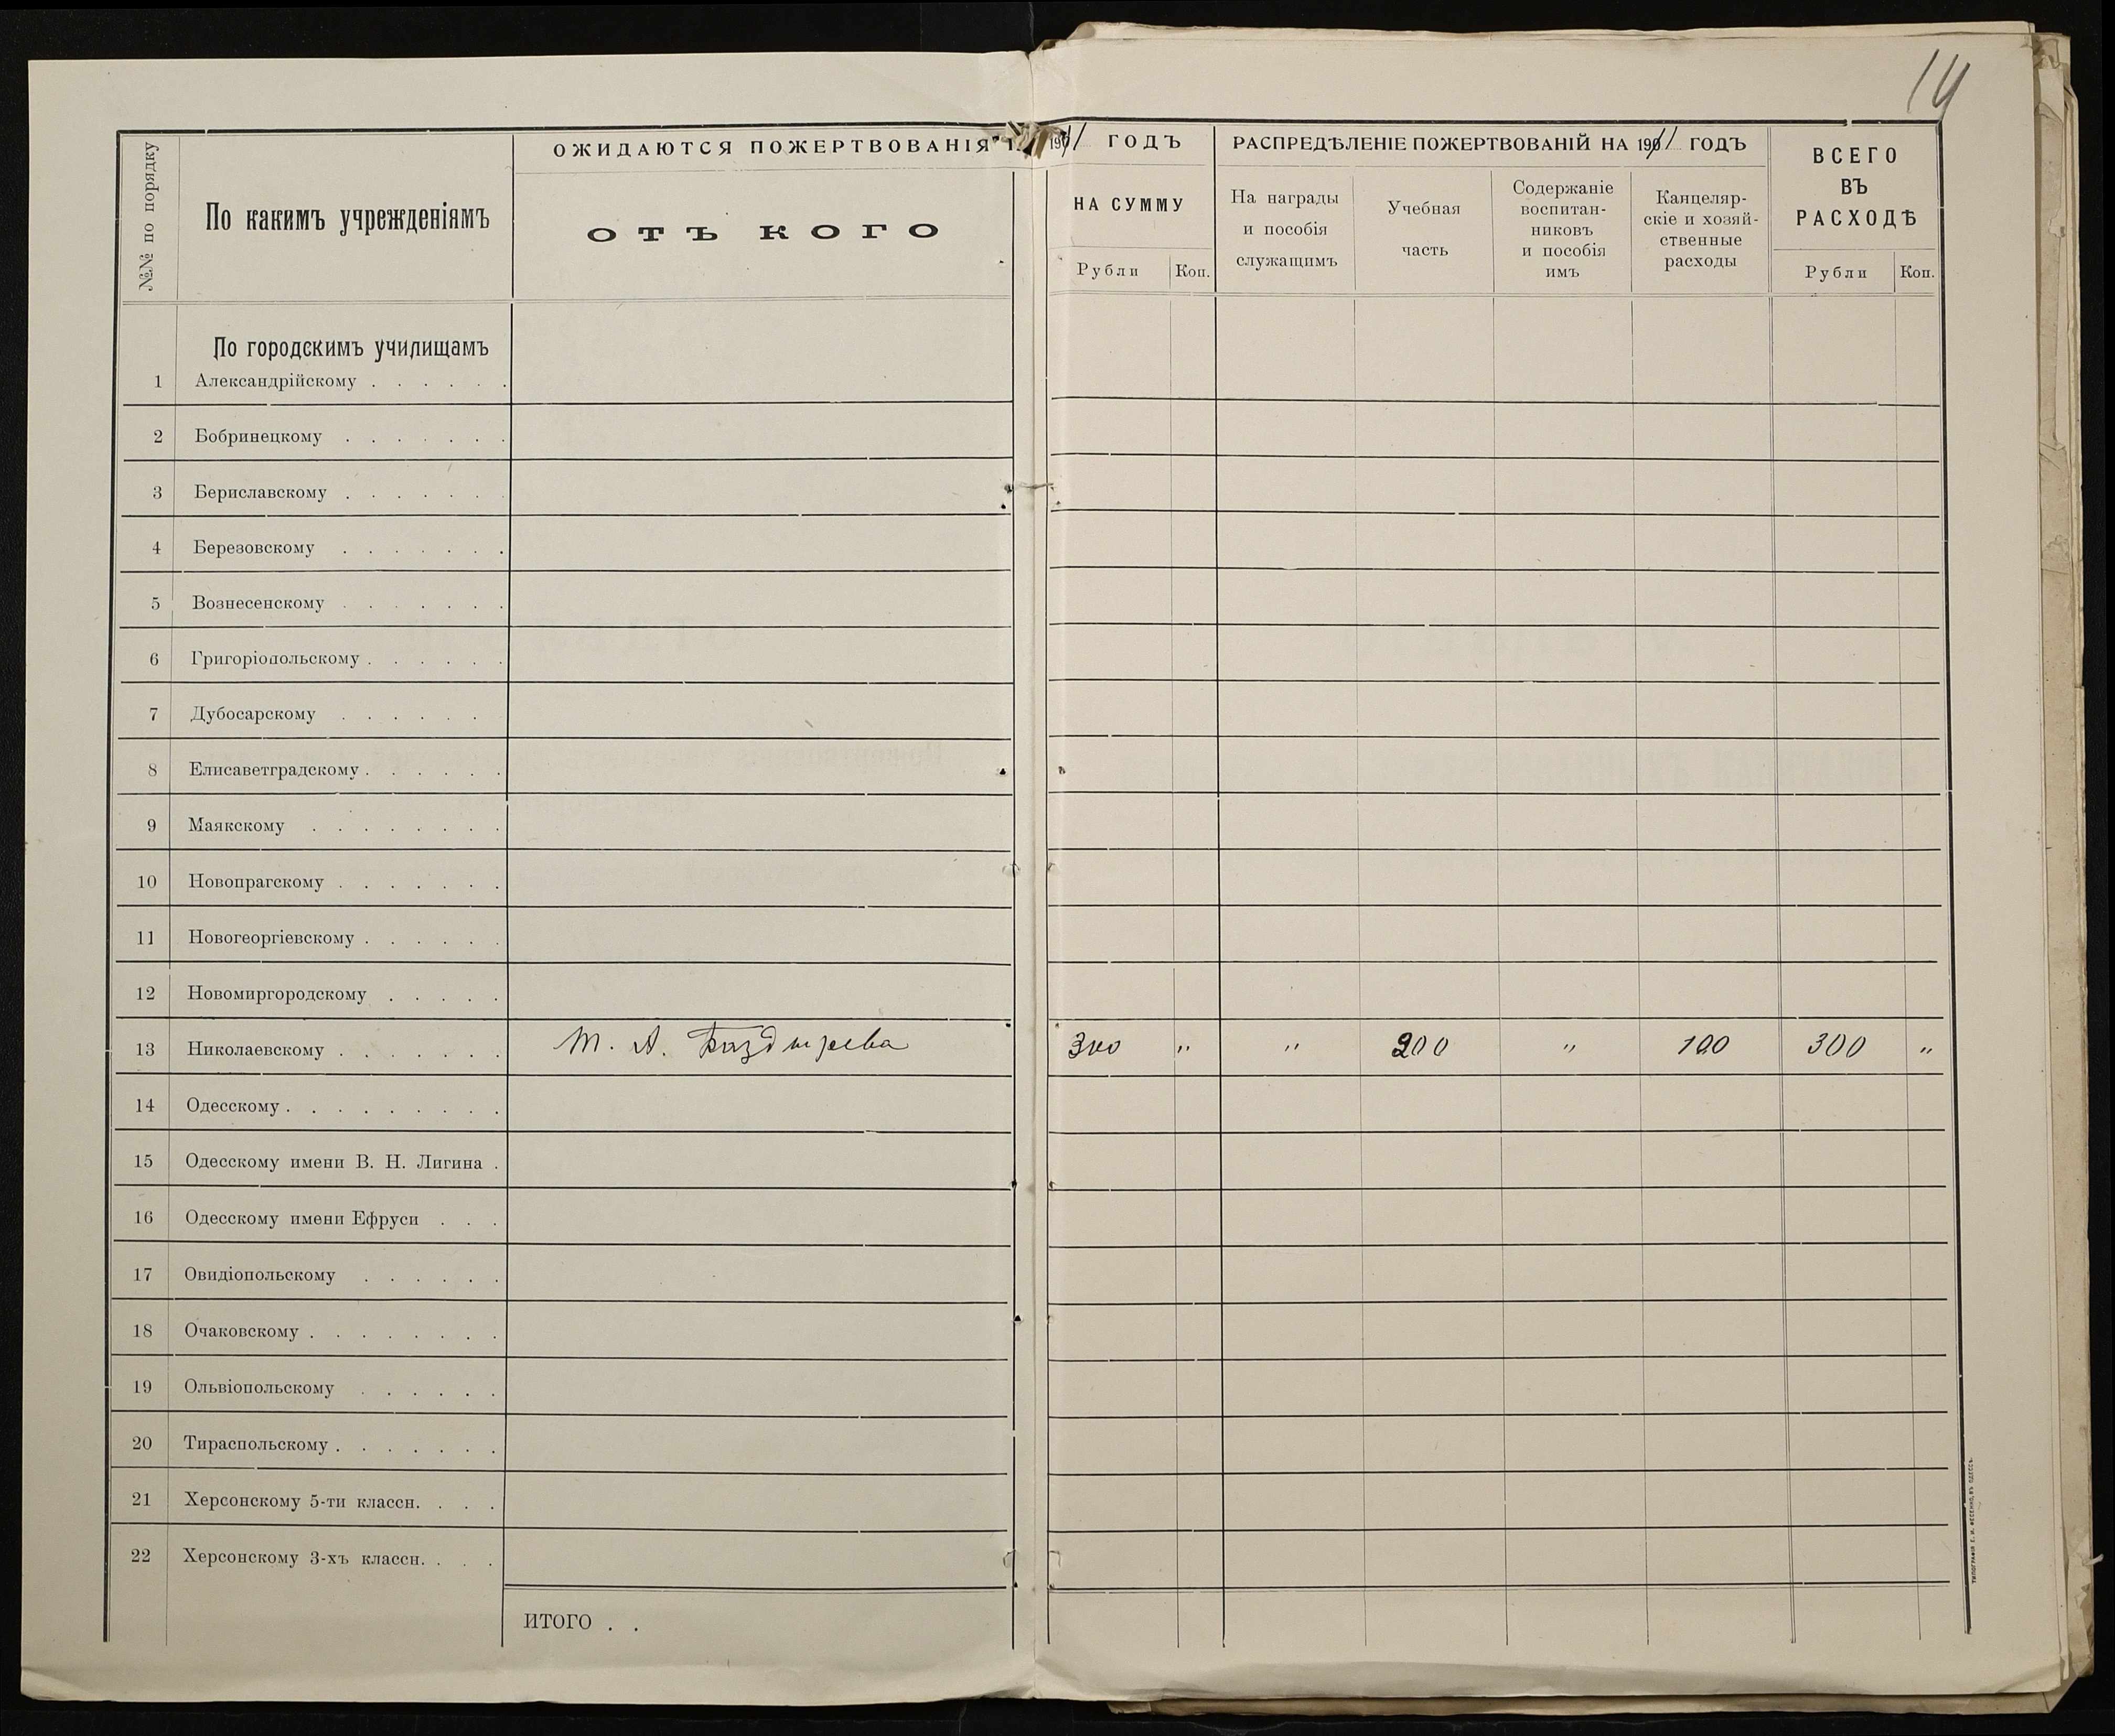 14
№№ по порядку
По какимъ учрежденіямъ
ОЖИДАЮТСЯ ПОЖЕРТВОВАНІЯ
ГОДЪ
ОТЪ КОГО
НА СУММУ
Рубли Коп.
РАСПРЕДѢЛЕНІЕ ПОЖЕРТВОВАНІЙ НА 1911 ГОДЪ
На награды
и пособія
служащимъ
Учебная
часть
Содержаніе
воспитан-
никовъ
и пособія
имъ
Канцеляр-
скіе и хозяй-
ственные
расходы
ВСЕГО
ВЪ
РАСХОДѢ
Рубли Коп.
По городскимъ училищамъ
1 Александрійскому . . . . . .
2 Бобринецкому . . . . . . .
3 Бериславскому . . . . . . .
4 Березовскому . . . . . . .
5 Вознесенскому . . . . . . .
6 Григоріопольскому . . . . . .
7 Дубосарскому . . . . . .
8 Елисаветградскому . . . . . .
9 Маякскому . . . . . . . .
10 Новопрагскому . . . . . . .
11 Новогеоргіевскому . . . . . .
12 Новомиргородскому . . . . .
13 Николаевскому . . . . . . . Т. А. Баздырева 300 " " 200 " 100 300 "
14 Одесскому . . . . . . . . .
15 Одесскому имени В. Н. Лигина .
16 Одесскому имени Ефруси . . .
17 Овидіопольскому . . . . . .
18 Очаковскому . . . . . . . .
19 Ольвіопольскому . . . . . .
20 Тираспольскому . . . . . . .
21 Херсонскому 5-ти классн. . . .
22 Херсонскому 3-хъ классн. . . .
ИТОГО . .